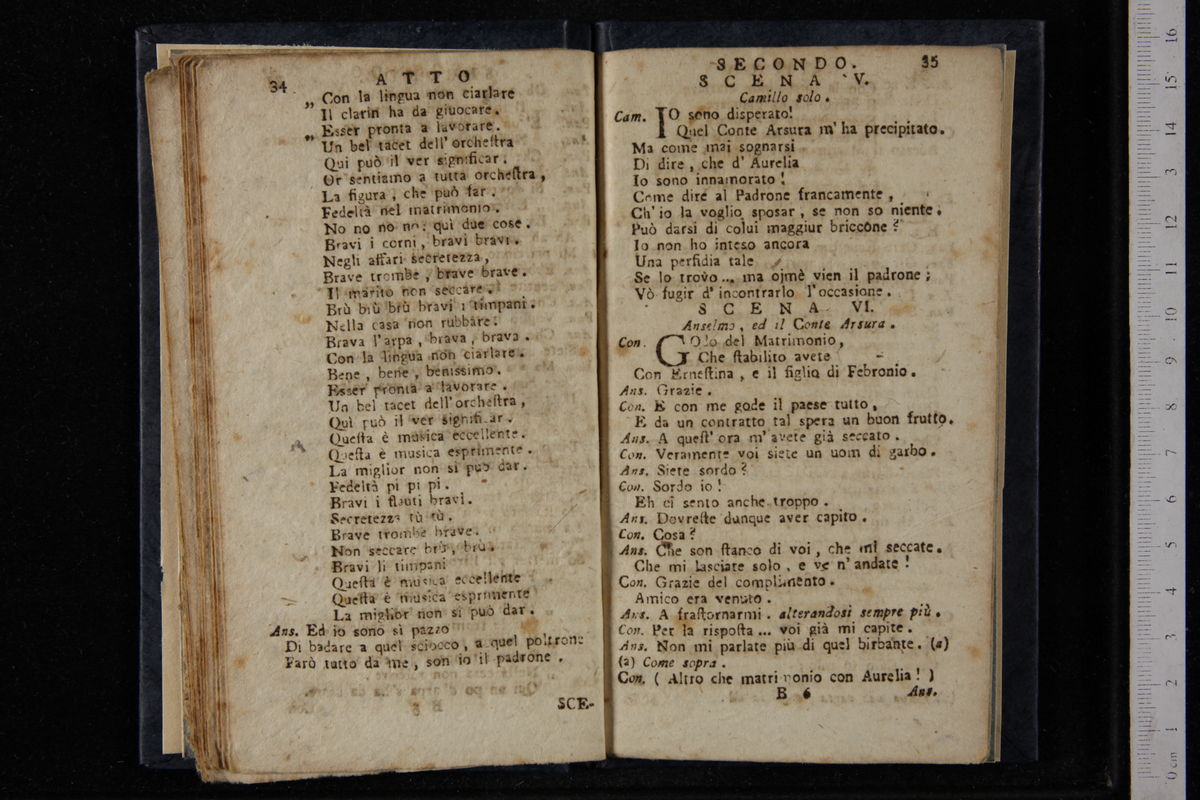 34
ATTO
„ Con la lingua non ciarlare
Il clarin ha da giuocare.
„ Esser pronta a lavorare.
Un bel tacet dell' orcheſtra
Qui può il ver significar.
Or sentiamo a tutta orcheſtra,
La figura, che può far.
Fedeltà nel matrimonio.
No no no no: quì due cose.
Bravi i corni, bravi bravi.
Negli affari secretezza,
Brave trombe, brave brave.
Il marito non seccare.
Brù brù brù bravi i timpani.
Nella casa non rubbare.
Brava l'arpa, brava, brava.
Con la lingua non ciarlare.
Bene, bene, benissimo.
Esser pronta a lavorare.
Un bel tacet dell' orcheſtra,
Quì può il ver significar.
Queſta è musica eccellente.
Queſta è musica esprimente.
La miglior non si può dar.
Fedeltà pi pi pi.
Bravi i flauti bravi.
Secretezza tù tù.
Brave trombe brave.
Non seccare brù, brù.
Bravi li timpani
Queſta è musica eccellente
Queſta è musica esprimente
La miglior non si può dar.
Ans. Ed io sono sì pazzo
Di badare a quel sciocco, a quel poltrone
Farò tutto da me, son io il padrone.
SCE-
SECONDO. 35
SCENA V.
Camillo solo.
Cam. IO sono disperato!
Quel Conte Arsura m' ha precipitato.
Ma come mai sognarsi
Di dire, che d' Aurelia
Io sono innamorato!
Come dire al Padrone francamente,
Ch' io la voglio sposar, se non so niente.
Può darsi di colui maggiur briccone?
Io non ho inteso ancora
Una perfidia tale
Se lo trovo... ma ojmè vien il padrone;
Vò fugir d' incontrarlo l'occasione.
SCENA VI.
Anselmo, ed il Conte Arsura.
Con. GOdo del Matrimonio,
Che ſtabilito avete
Con Erneſtina, e il figlio di Febronio.
Ans. Grazie.
Con. E con me gode il paese tutto,
E da un contratto tal spera un buon frutto.
Ans. A queſt' ora m' avete già seccato.
Con. Veramente voi siete un uom di garbo.
Ans. Siete sordo?
Con. Sordo io!
Eh ci sento anche troppo.
Ans. Dovreſte dunque aver capito.
Con. Cosa?
Ans. Che son ſtanco di voi, che mi seccate.
Che mi lasciate solo, e ve n' andate!
Con. Grazie del complimento.
Amico era venuto.
Ans. A fraſtornarmi. alterandosi sempre più.
Con. Per la rispoſta... voi già mi capite.
Ans. Non mi parlate più di quel birbante. (a)
(a) Come sopra.
Con. ( Altro che matrimonio con Aurelia! )
B 6 Ans.